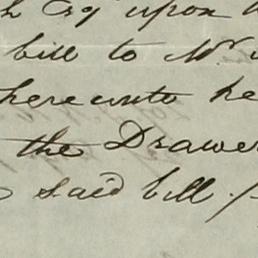 h Esqr upon
bill to Mr
hereunto he
the Drawer
said bill